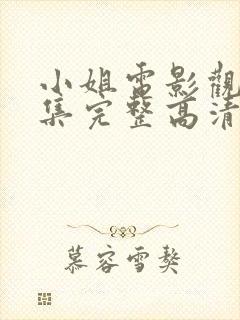 小姐電影觀
集完整高清
慕容雪獒